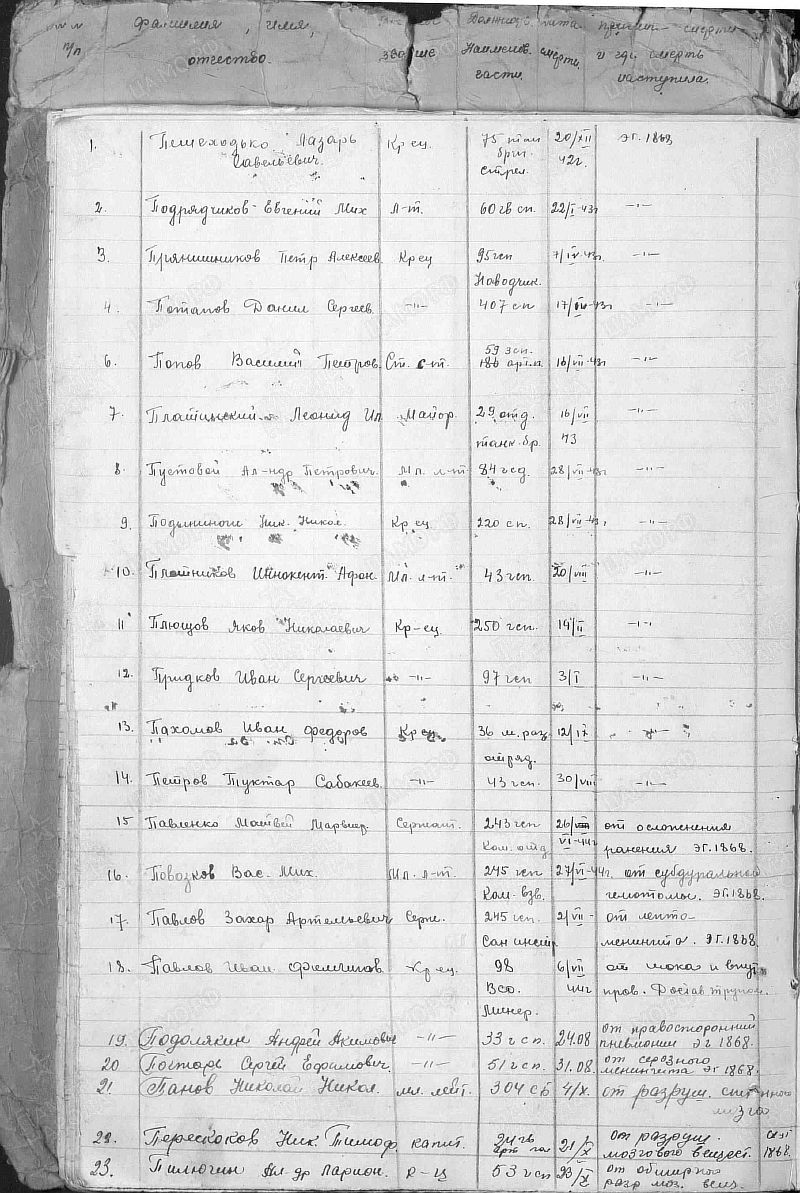 №№ Фамилия, имя, звание Должность дата причин. смерти
п/п отчество. Наименов. смерти. и где смерть
части. наступила.
1. Пешеходько Лазарь Кр-ец. 75 20/XII ЭГ. 1868
Савельевич. бриг. 42г.
стрел.
2. Подрядчиков Евгений Мих Л-т. 60 гв сп. 22/I-43г —"—
3. Прянишников Петр Алексеев Кр ец 95 гсп 7/IV-43г. —"—
Наводчик.
4. Потапов Данил Сергеев. —"— 407 сп 17/ -43г —"—
59 зсп.
6. Попов Василий Петров. Ст. с-т. 186 арт.п. 16/VII-43г —"—
7. Платинский Леонид Ил Майор. 29 отд. 16/VII —"—
танк. бр. 43
8. Пустовой Ал-ндр Петрович. Мл. л-т 84 гсд. 28/VII-43г —"—
9. Ник. Никол. Кр ец. 220 сп. 28/VII-43г —"—
10. Плотников Иннокент. Афон. Мл. л-т. 43 гсп. 20/VIII —"—
11 Плющов Яков Николаевич Кр-ец. 250 гсп. 14/II —"—
12. Придков Иван Сергеевич —"— 97 гсп 3/I —"—
13. Пахомов Иван Федоров Кр ец 36 м. раз 12/IX —"—
отряд.
14. Петров Туктар Сабакеев. —"— 43 гсп. 30/VIII —"—
15 Павленко Матвей Сержант. 243 гсп 26/ от осложнения
Ком. отд VI-44г ранения ЭГ. 1868.
16. Повозков Вас. Мих. Мл. л-т. 245 гсп 27/VI-44г. от субдуральной
Ком. взв. гемотомы. ЭГ. 1868.
17. Павлов Захар Артемьевич Серж. 245 гсп. 2/VII - от лепто
Сан инстр. менингита. ЭГ. 1868.
18. Павлов Иван Кр ец. 98 6/VII от шока и внут
Всо. 44г кров. Достав трупом.
Минер.
19. Подолякин Андрей Акимович —"— 33 гсп. 24.08 от правосторонний
пневмонии эг 1868.
20 Гостарь Сергей Ефрамович —"— 51 гсп. 31.08. от серозного
менингита эг 1868.
21 Панов Николай Никол. мл. лейт. 304 сб 4/X. от разруш. спинного
мозга
22. Перескоков Ник. Тимоф. капит. 24 гв 21/X от разруш. эг
арт пол мозгового вещест. 1868.
23. Пилюгин Ал-др Ларион. р-ц 53 гсп 23/X от обширного
разр моз. вещ.